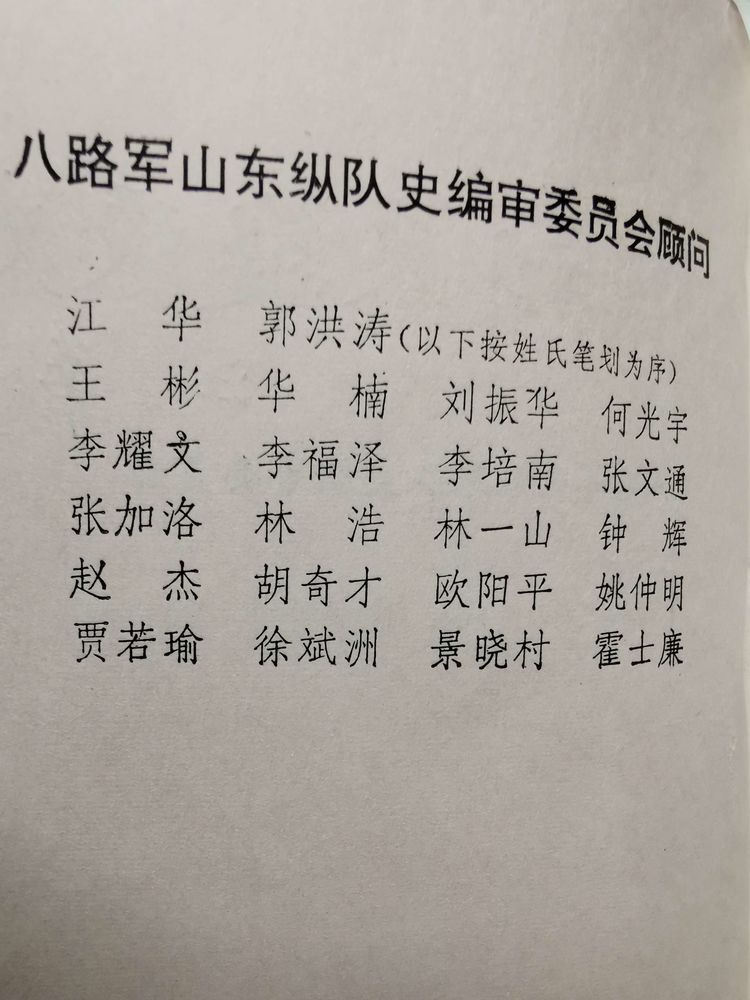 八路军山东纵队史编审委员会顾问
江　华　郭洪涛(以下按姓氏笔划为序)
王　彬　华　楠　刘振华　何光宇
李耀文　李福泽　李培南　张文通
张加洛　林　浩　林一山　钟　辉
赵　杰　胡奇才　欧阳平　姚仲明
贾若瑜　徐斌洲　景晓村　霍士廉